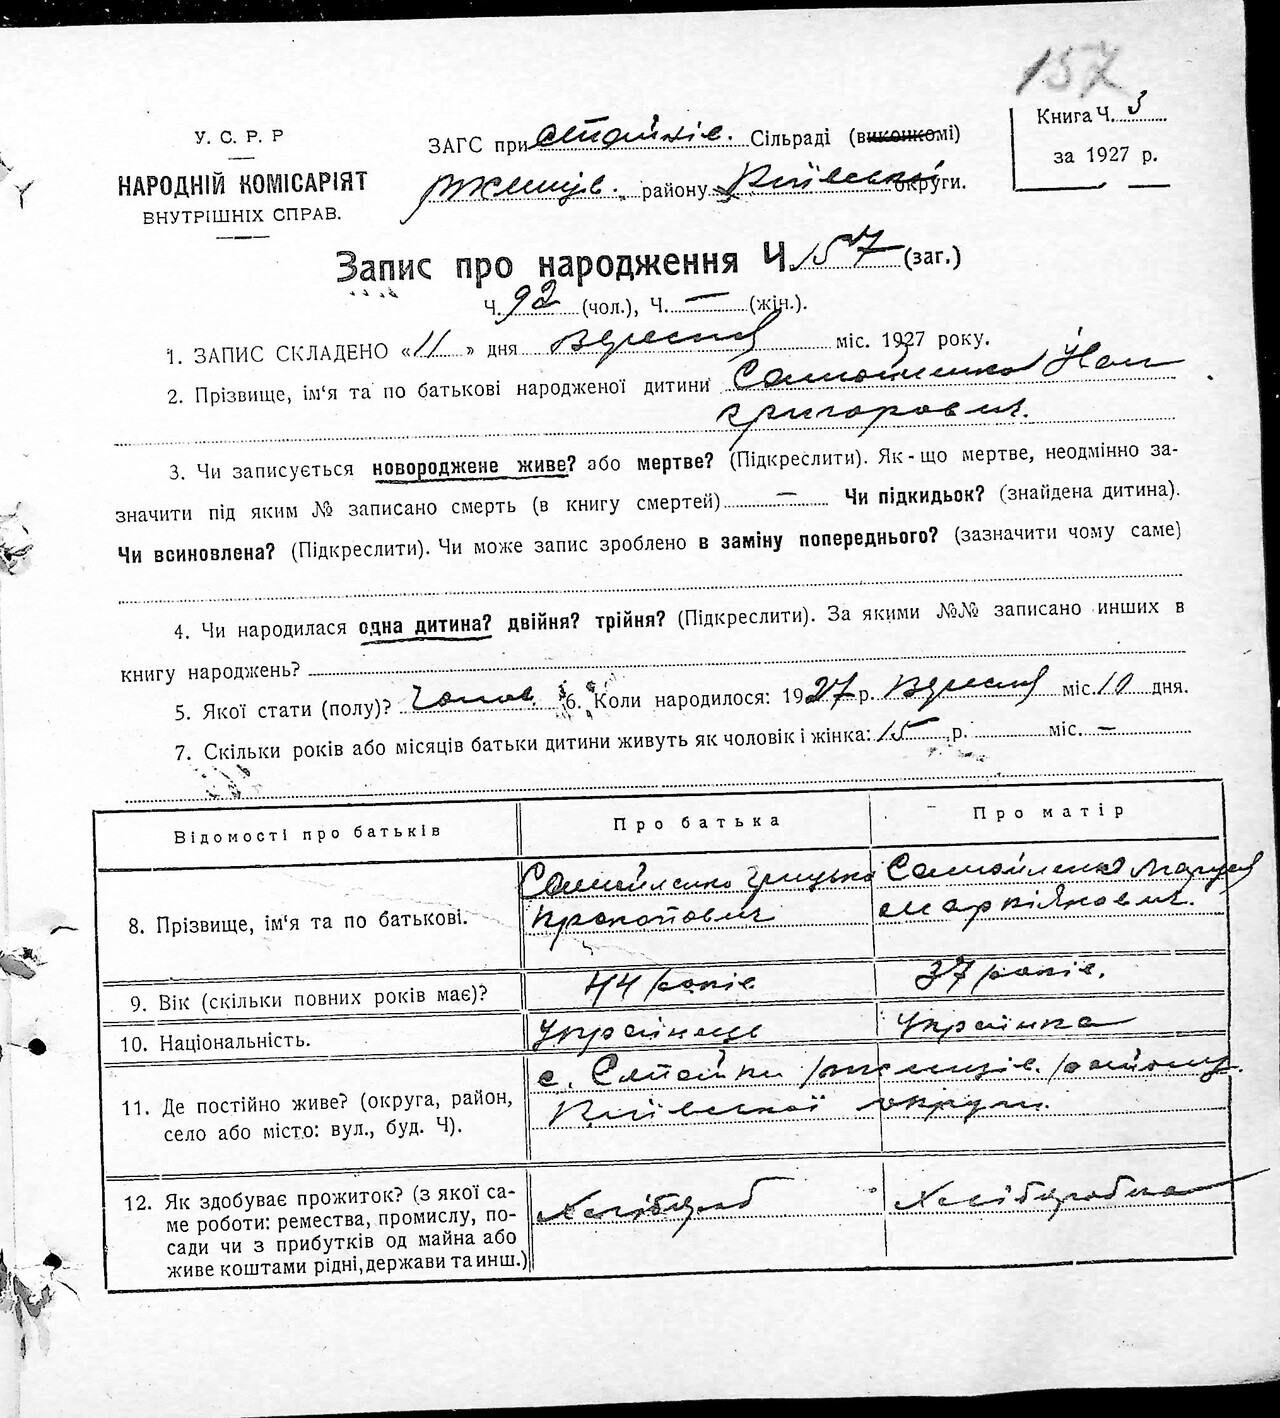 157
У. С. Р. Р
НАРОДНІЙ КОМІСАРІЯТ
ВНУТРІШНІХ СПРАВ.
ЗАГС при Стайків. Сільраді (виконкомі)
Ржищів. району Київської округи.
Книга Ч. 3
за 1927 р.
Запис про народження Ч. 157 (заг.)
Ч. 92 (чол.), Ч. — (жін.).
1. ЗАПИС СКЛАДЕНО «11» дня Вересня міс. 1927 року.
2. Прізвище, ім‘я та по батькові народженої дитини Самойленко
Григорович.
3. Чи записується новороджене живе? або мертве? (Підкреслити). Як-що мертве, неодмінно за-
значити під яким № записано смерть (в книгу смертей) — Чи підкидьок? (знайдена дитина).
Чи всиновлена? (Підкреслити). Чи може запис зроблено в заміну попереднього? (зазначити чому саме)
4. Чи народилася одна дитина? двійня? трійня? (Підкреслити). За якими №№ записано инших в
книгу народжень?
5. Якої стати (полу)? Чолов. 6. Коли народилося: 1927 р. Вересня міс. 10 дня.
7. Скільки років або місяців батьки дитини живуть як чоловік і жінка: 15 р. міс. —
Відомості про батьків Про батька Про матір
8. Прізвище, ім‘я та по батькові. Самойленко Грицько Самойленко Маруся
Прокопович Маркіянович.
9. Вік (скільки повних років має)? 44 років 37 років.
10. Національність. Українець Українка
11. Де постійно живе? (округа, район, с. Стайки Ржищів. району
село або місто: вул., буд. Ч). Київської округи.
12. Як здобуває прожиток? (з якої са- Хлібороб Хліборобка
ме роботи: ремества, промислу, по-
сади чи з прибутків од майна або
живе коштами рідні, держави та инш.)